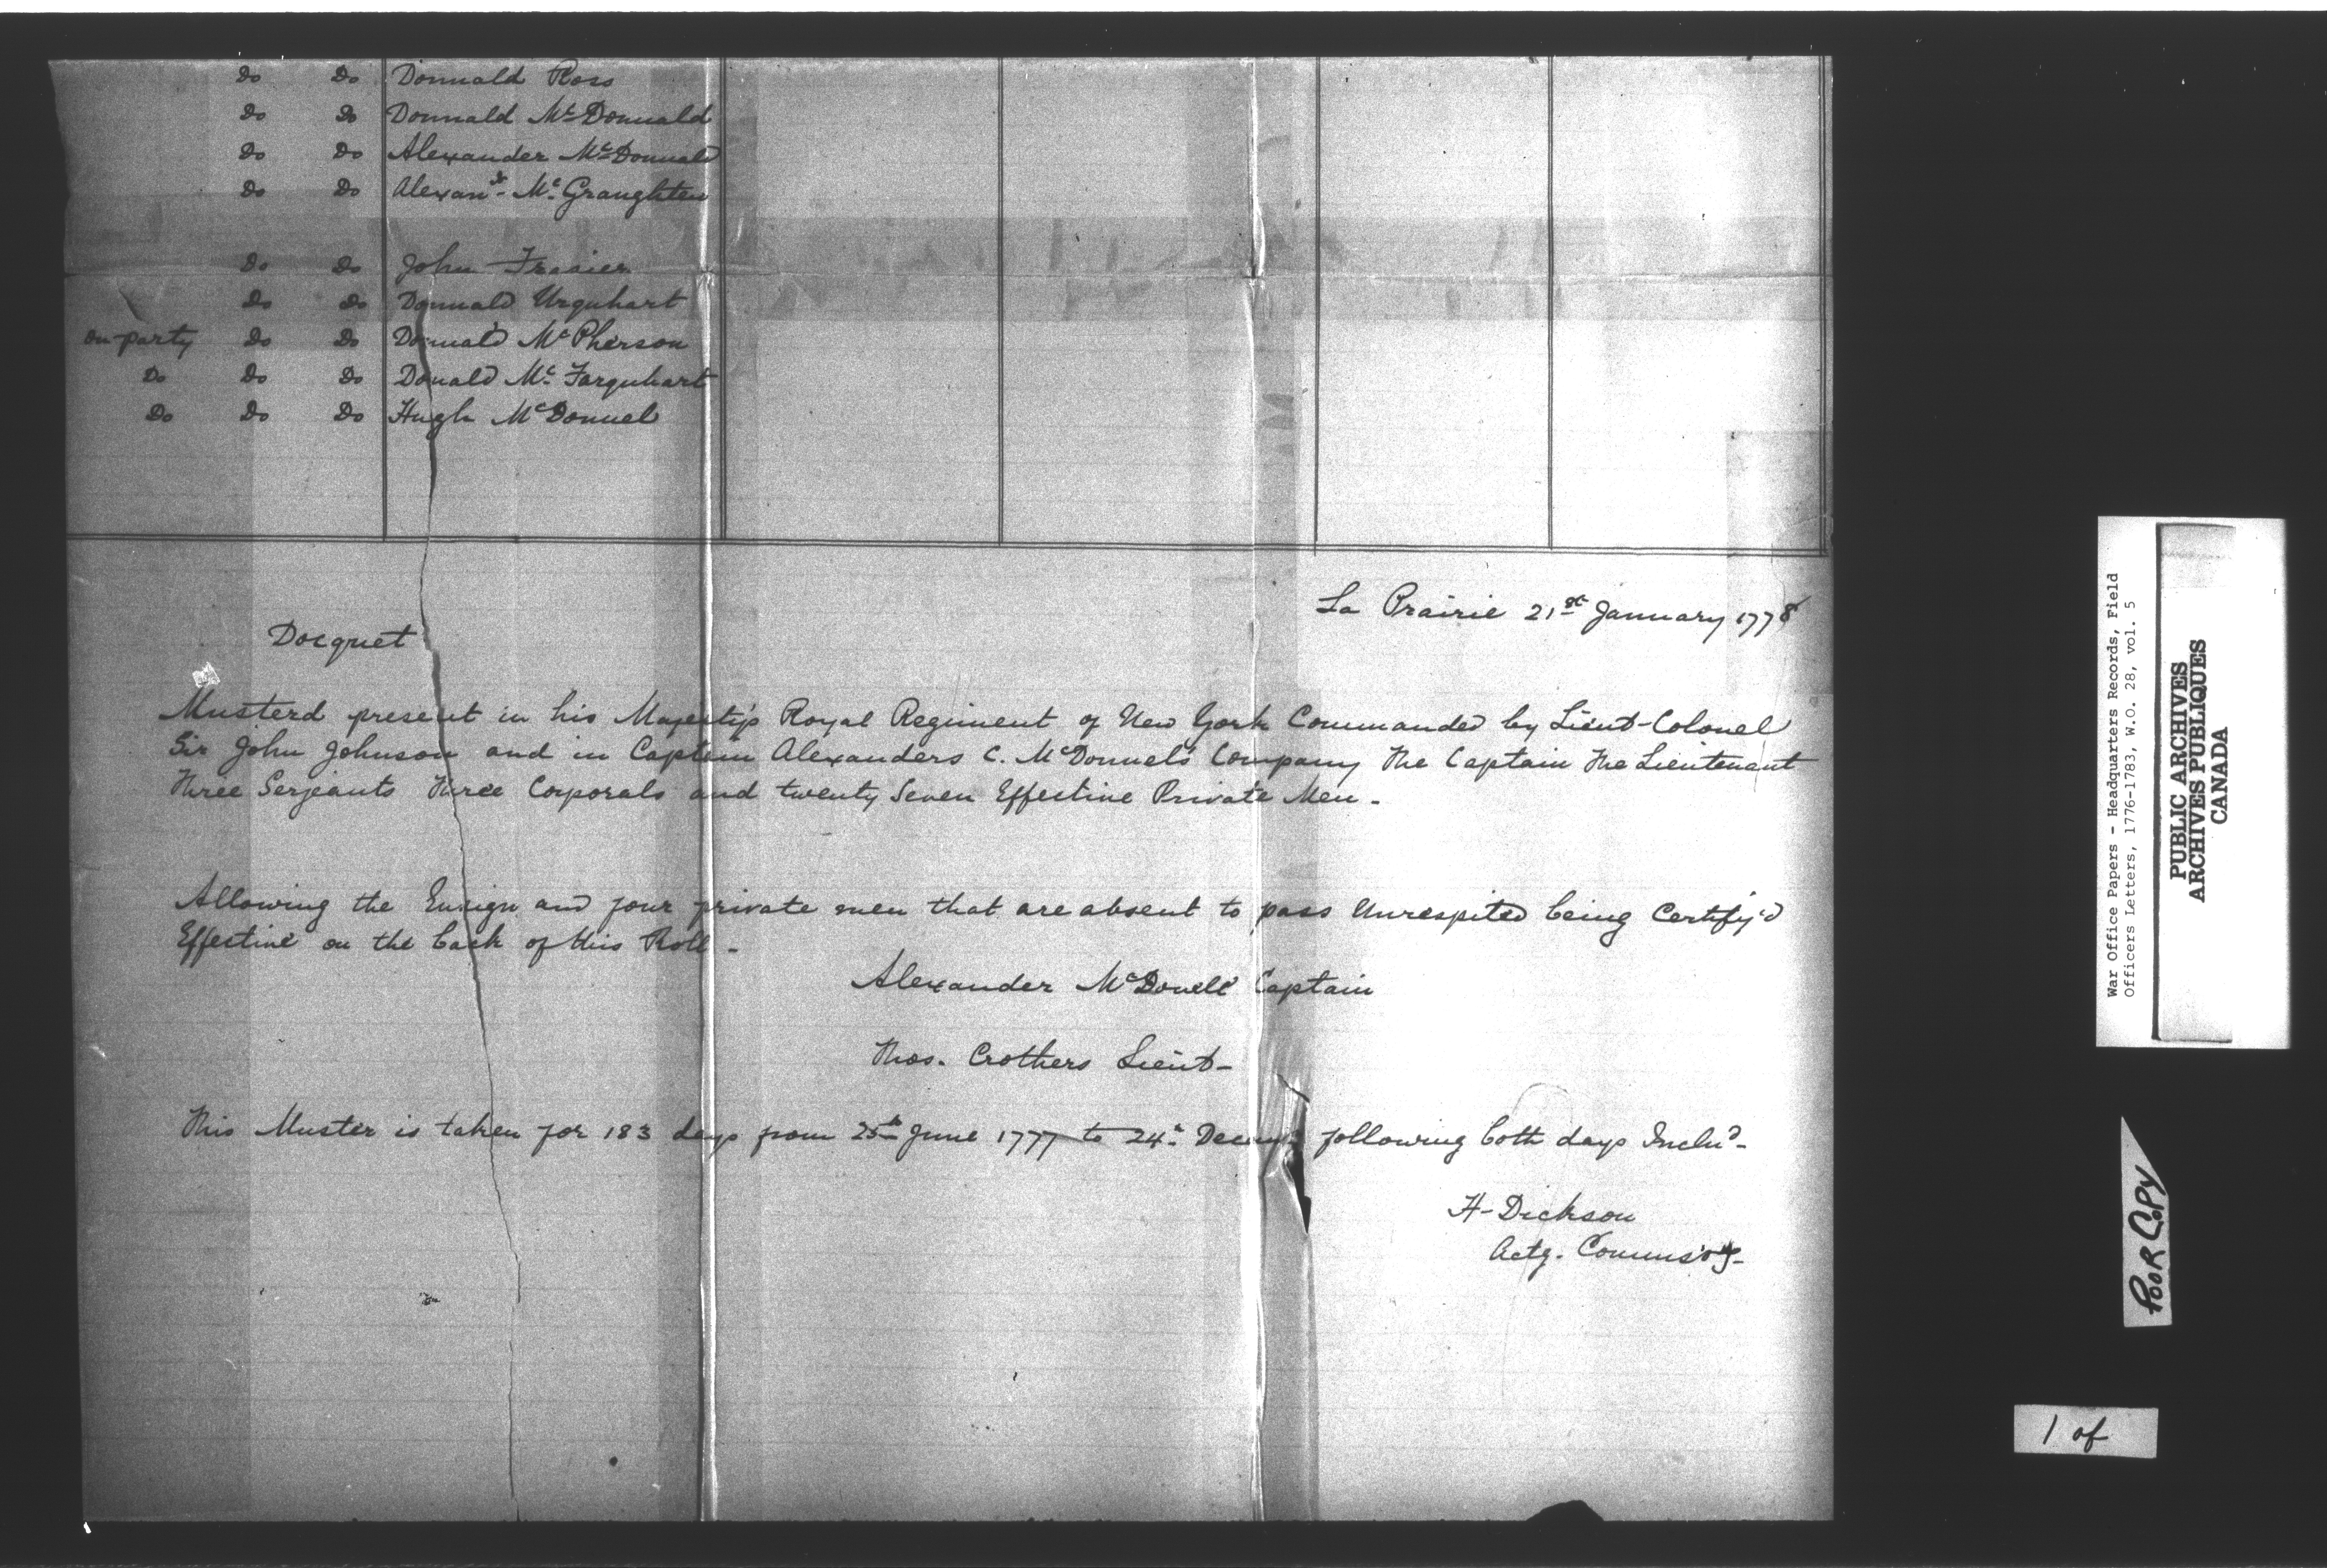 Do Do Donnald Ross
Do Do Donnald McDonnald
Do Do Alexander McDonnald
Do Do Alexanr McGraughten
Do Do John Frasier
Do Do Donnald Urquhart
On party Do Do Donnald McPherson
Do Do Do Donald McFarquhart
Do Do Do Hugh McDonnel
La Prairie 21st January 1778
Docquet
Musterd present in his Majestys Royal Regiment of New York Commanded by Lieut-Colonel
Sir John Johnson and in Captain Alexanders C. McDonnels Company The Captain The Lieutenant
Three Serjeants Three Corporals and twenty Seven Effective Private Men -
Allowing the Ensign and four private men that are absent to pass Unrespited being Certify'd
Effective on the back of this Roll -
Alexander McDonell Captain
Thos. Crothers Lieut-
This Muster is taken for 183 days from 25th June 1777 to 24th following both days Includ-
H-Dickson
Actg. Commsry-
War Office Papers - Headquarters Records, Field
Officers Letters, 1776-1783, W.O. 28, vol. 5
PUBLIC ARCHIVES
ARCHIVES PUBLIQUES
CANADA
POOR COPY
1 of